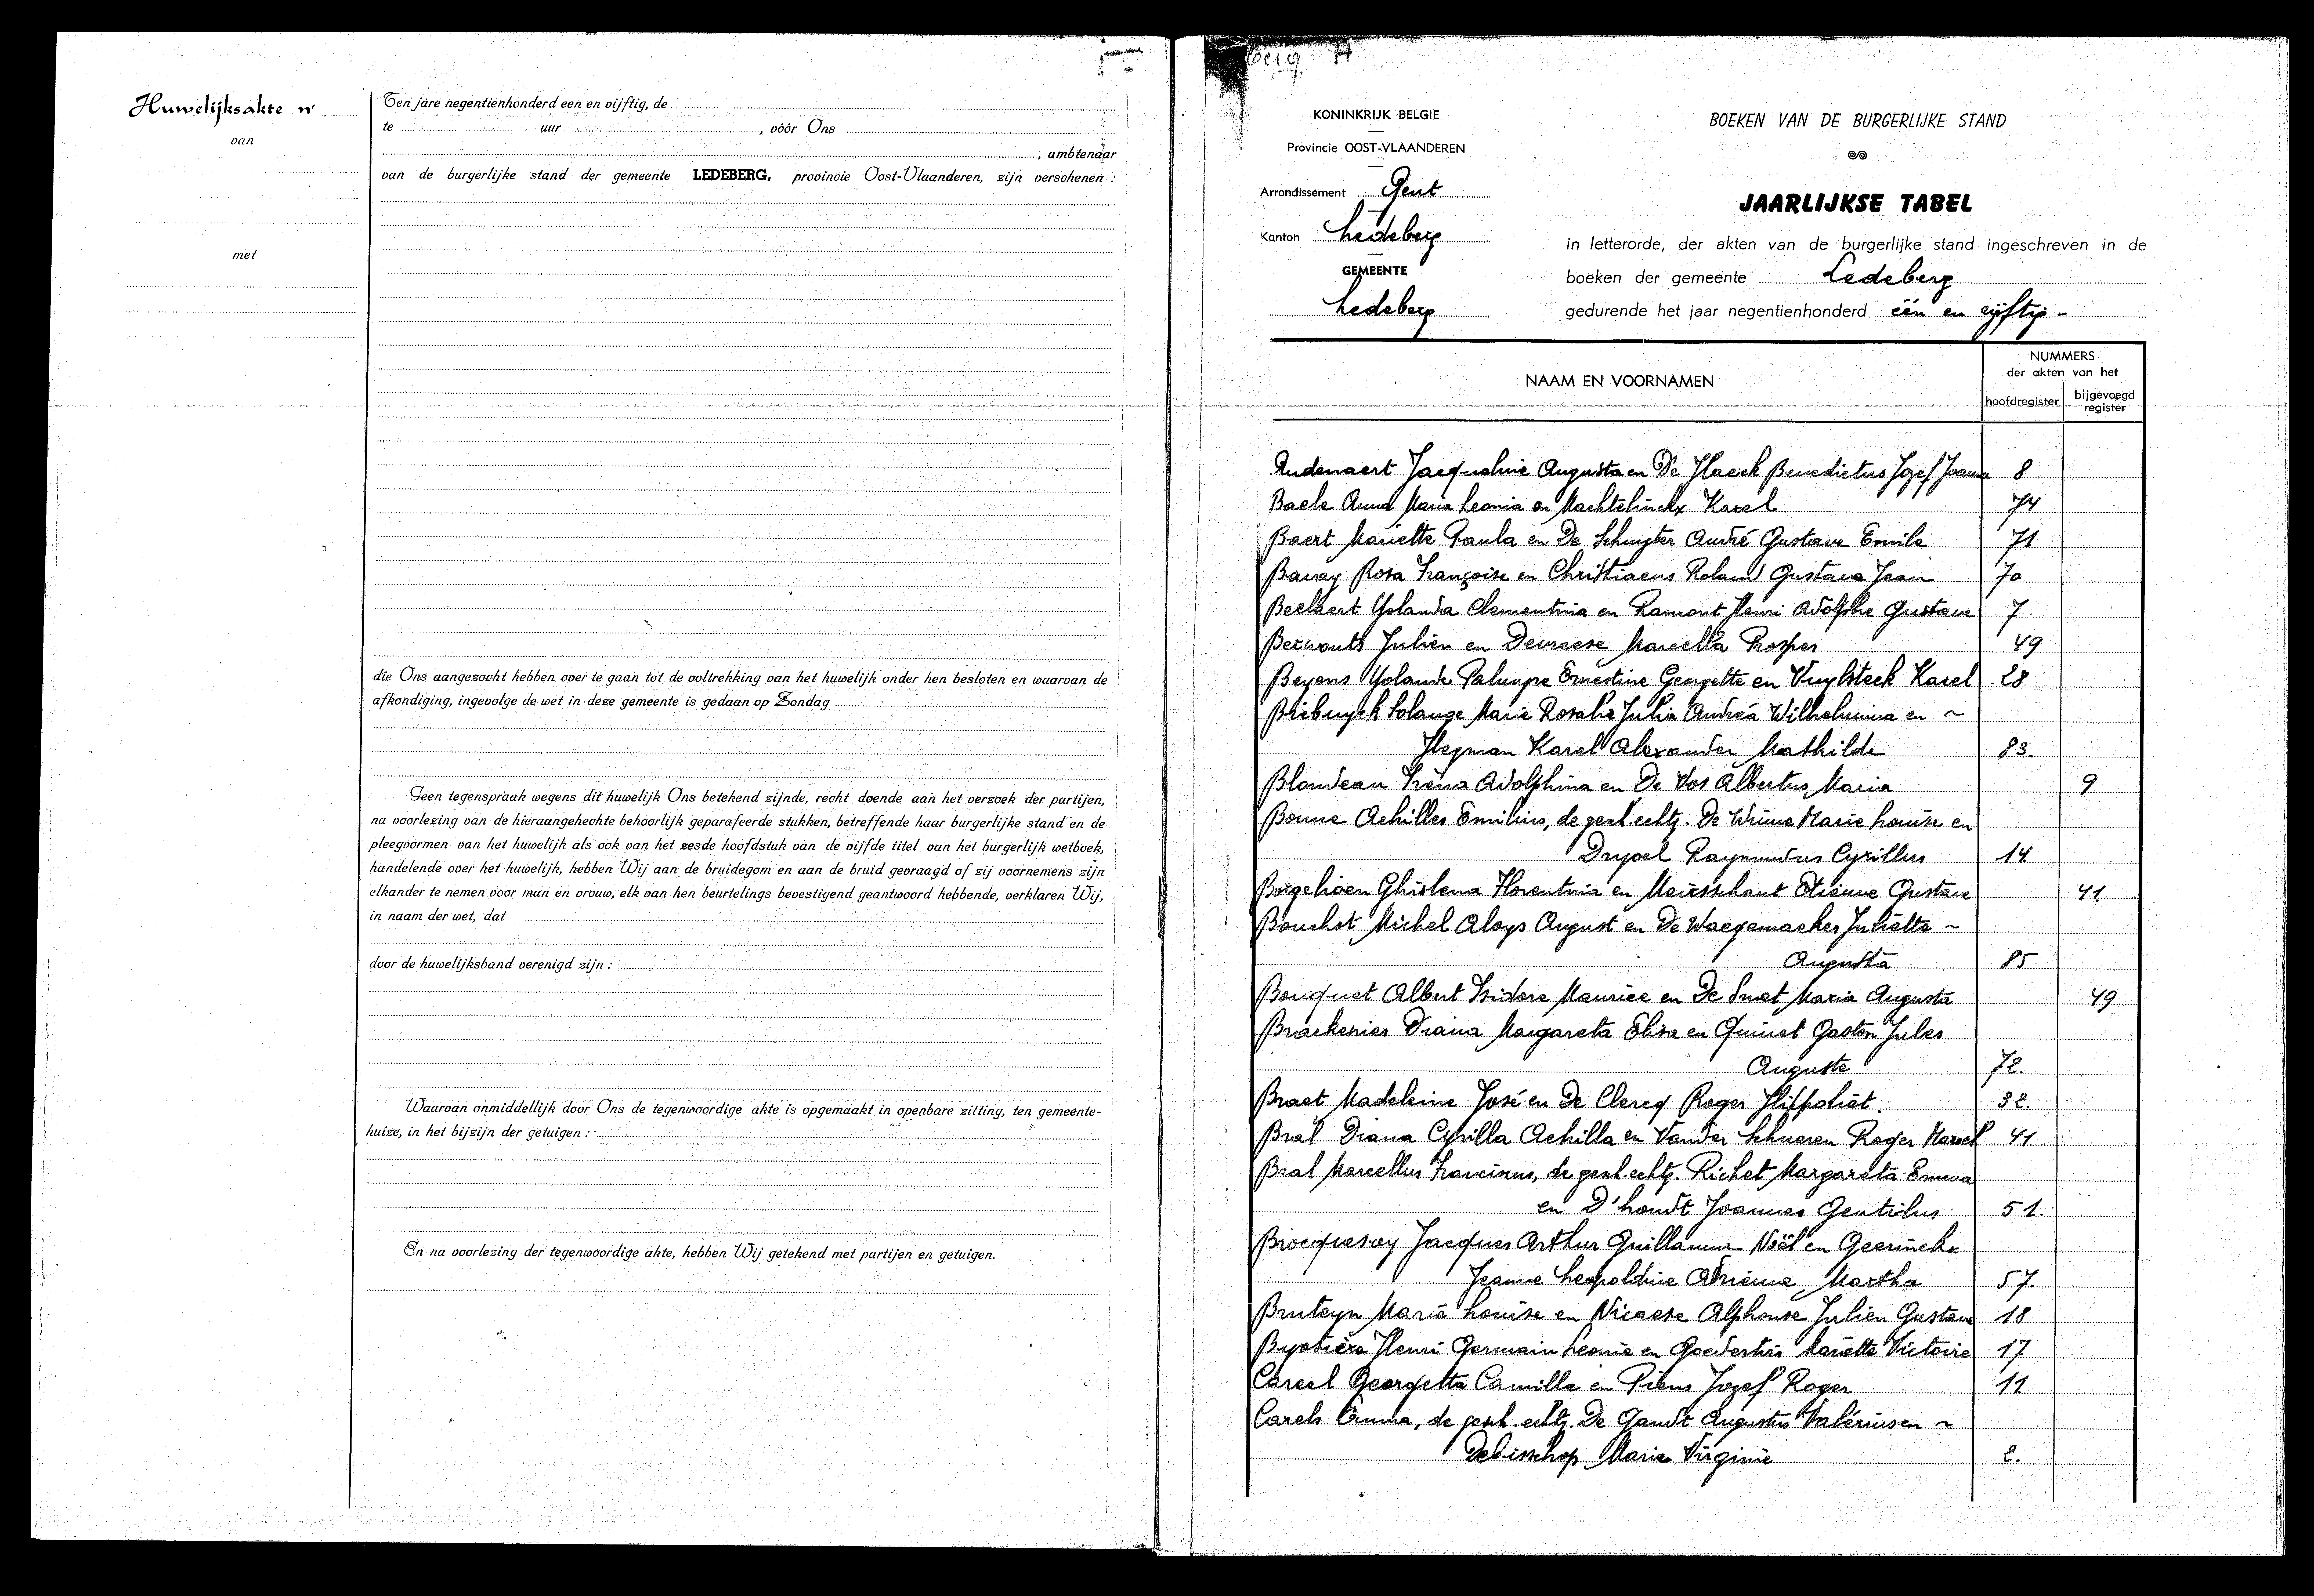 Huwelijksakte nr
van
met
Ten jare negentienhonderd een en vijftig, de
te uur , vóór Ons
, ambtenaar
van de burgerlijke stand der gemeente LEDEBERG, provincie Oost-Vlaanderen, zijn verschenen :
die Ons aangezocht hebben over te gaan tot de voltrekking van het huwelijk onder hen besloten en waarvan de
afkondiging, ingevolge de wet in deze gemeente is gedaan op Zondag
Geen tegenspraak wegens dit huwelijk Ons betekend zijnde, recht doende aan het verzoek der partijen,
na voorlezing van de hieraangehechte behoorlijk geparafeerde stukken, betreffende haar burgerlijke stand en de
pleegvormen van het huwelijk als ook van het zesde hoofdstuk van de vijfde titel van het burgerlijk wetboek,
handelende over het huwelijk, hebben Wij aan de bruidegom en aan de bruid gevraagd of zij voornemens zijn
elkander te nemen voor man en vrouw, elk van hen beurtelings bevestigend geantwoord hebbende, verklaren Wij,
in naam der wet, dat
door de huwelijksband verenigd zijn :
Waarvan onmiddellijk door Ons de tegenwoordige akte is opgemaakt in openbare zitting, ten gemeente-
huize, in het bijzijn der getuigen :
En na voorlezing der tegenwoordige akte, hebben Wij getekend met partijen en getuigen.
KONINKRIJK BELGIE
Provincie OOST-VLAANDEREN
Arrondissement Gent
Kanton Ledeberg
GEMEENTE
Ledeberg
BOEKEN VAN DE BURGERLIJKE STAND
JAARLIJKSE TABEL
in letterorde, der akten van de burgerlijke stand ingeschreven in de
boeken der gemeente Ledeberg
gedurende het jaar negentienhonderd één en vijftig -
NAAM EN VOORNAMEN
NUMMERS
der akten van het
hoofdregister
bijgevoegd
register
Audenaert Jacqueline Augusta en De Vlaeck Benedictus Jozef Joanna 8
Baele Anna Maria Leonia en Machtelinckx Karel 74
Baert Mariette Paula en De Schuyter André Gustave Emile 71
Bavay Rosa Françoise en Christiaens Roland Gustave Jean 70
Beelaert Yolanda Clementina en Ramont Henri Adolphe Gustave 7
Berwouts Julien en Devreese Marcella Prosper 49
Beyens Yolande Ernestine Georgette en Vuylsteek Karel 28
Biebuyck Solange Marie Rosalie Julia Andréa Wilhelmina en ~
Hegman Karel Alexander Mathilde 83.
Blondeau Iréna Adolphina en De Vos Albertus Maria 9
Bonne Achilles Emilius, de gesch. echtg. De Wrime Marie Louise en
Drypel Raymundus Cyrillus 14
Borgelioen Ghislena Florentina en Meirsschaut Etienne Gustave 41
Bouchot Michel Aloys August en De Waegemaeker Juliette ~
Augusta 85
Bouquet Albert Isidore Maurice en De Smet Maria Augusta 49
Brackenier Diana Margareta Elisa en Quinet Gaston Jules
Auguste 72.
Braet Madeleine José en De Clercq Roger Hippoliet. 32.
Bral Diana Cyrilla Achilla en Vander Schueren Roger Marcel 41
Bral Marcellus Franciscus, de gesch. echtg. Richet Margareta Emma
en D'hondt Joannes Gentilus 51.
Brocquesoy Jacques Arthur Guillaume Noël en Geerinckx
Jeanne Leopoldine Adrienne Martha 57.
Bruteyn Maria Louise en Nicaese Alphonse Julien Gustave 18
Henri Germain Leonie en Goedertier Mariette Victoire 17
Careel Georgetta Camilla en Piens Jozef Roger 11
Carels Emma, de gesch. echtg. De Gandt Augustus Valérius en ~
Debisschop Maria Virginie 2.